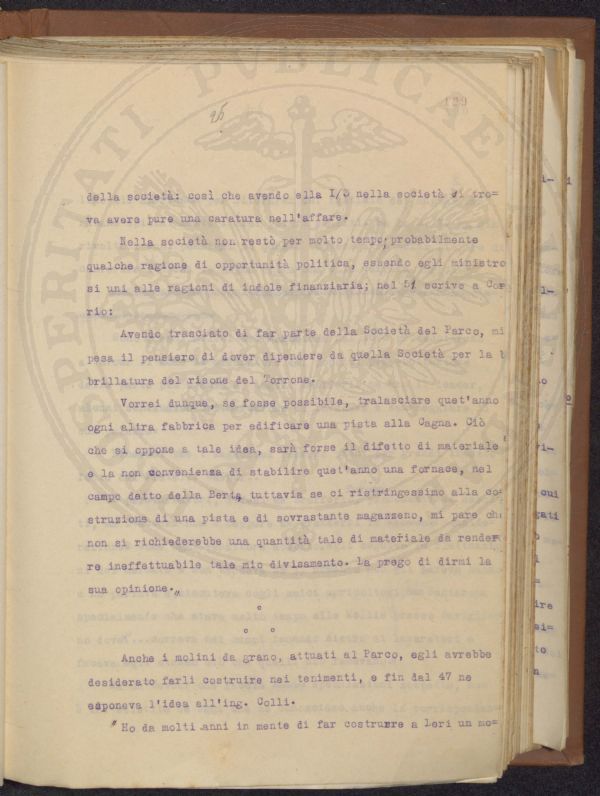 25
199
della società: così che avendo ella I/3 nella società si tro=
va avere pure una caratura nell'affare.
Nella società non restò per molto tempo; probabilmente
qualche ragione di opportunità politica, essendo egli ministro
si uni alle ragioni di indole finanziaria; nel 51 scrive a Cor
rio:
Avendo trasciato di far parte della Società del Parco, mi
pesa il pensiero di dover dipendere da quella Società per la b
brillatura del risone del Torrone.
Vorrei dunque, se fosse possibile, tralasciare quet'anno
ogni altra fabbrica per edificare una pista alla Cagna. Ciò
che si oppone a tale idea, sarà forse il difetto di materiale
e la non convenienza di stabilire quet'anno una fornace, nel
campo detto della Berta, tuttavia se ci ristringessimo alla co=
struzione di una pista e di sovrastante magazzeno, mi pare che
non si richiederebbe una quantità tale di materiale da render
re ineffettuabile tale mio divisamento. La prego di dirmi la
sua opinione.„
°
° °
Anche i molini da grano, attuati al Parco, egli avrebbe
desiderato farli costruire nei tenimenti, e fin dal 47 ne
esponeva l'idea all'ing. Colli.
"Ho da molti anni in mente di far costrurre a Leri un mo=